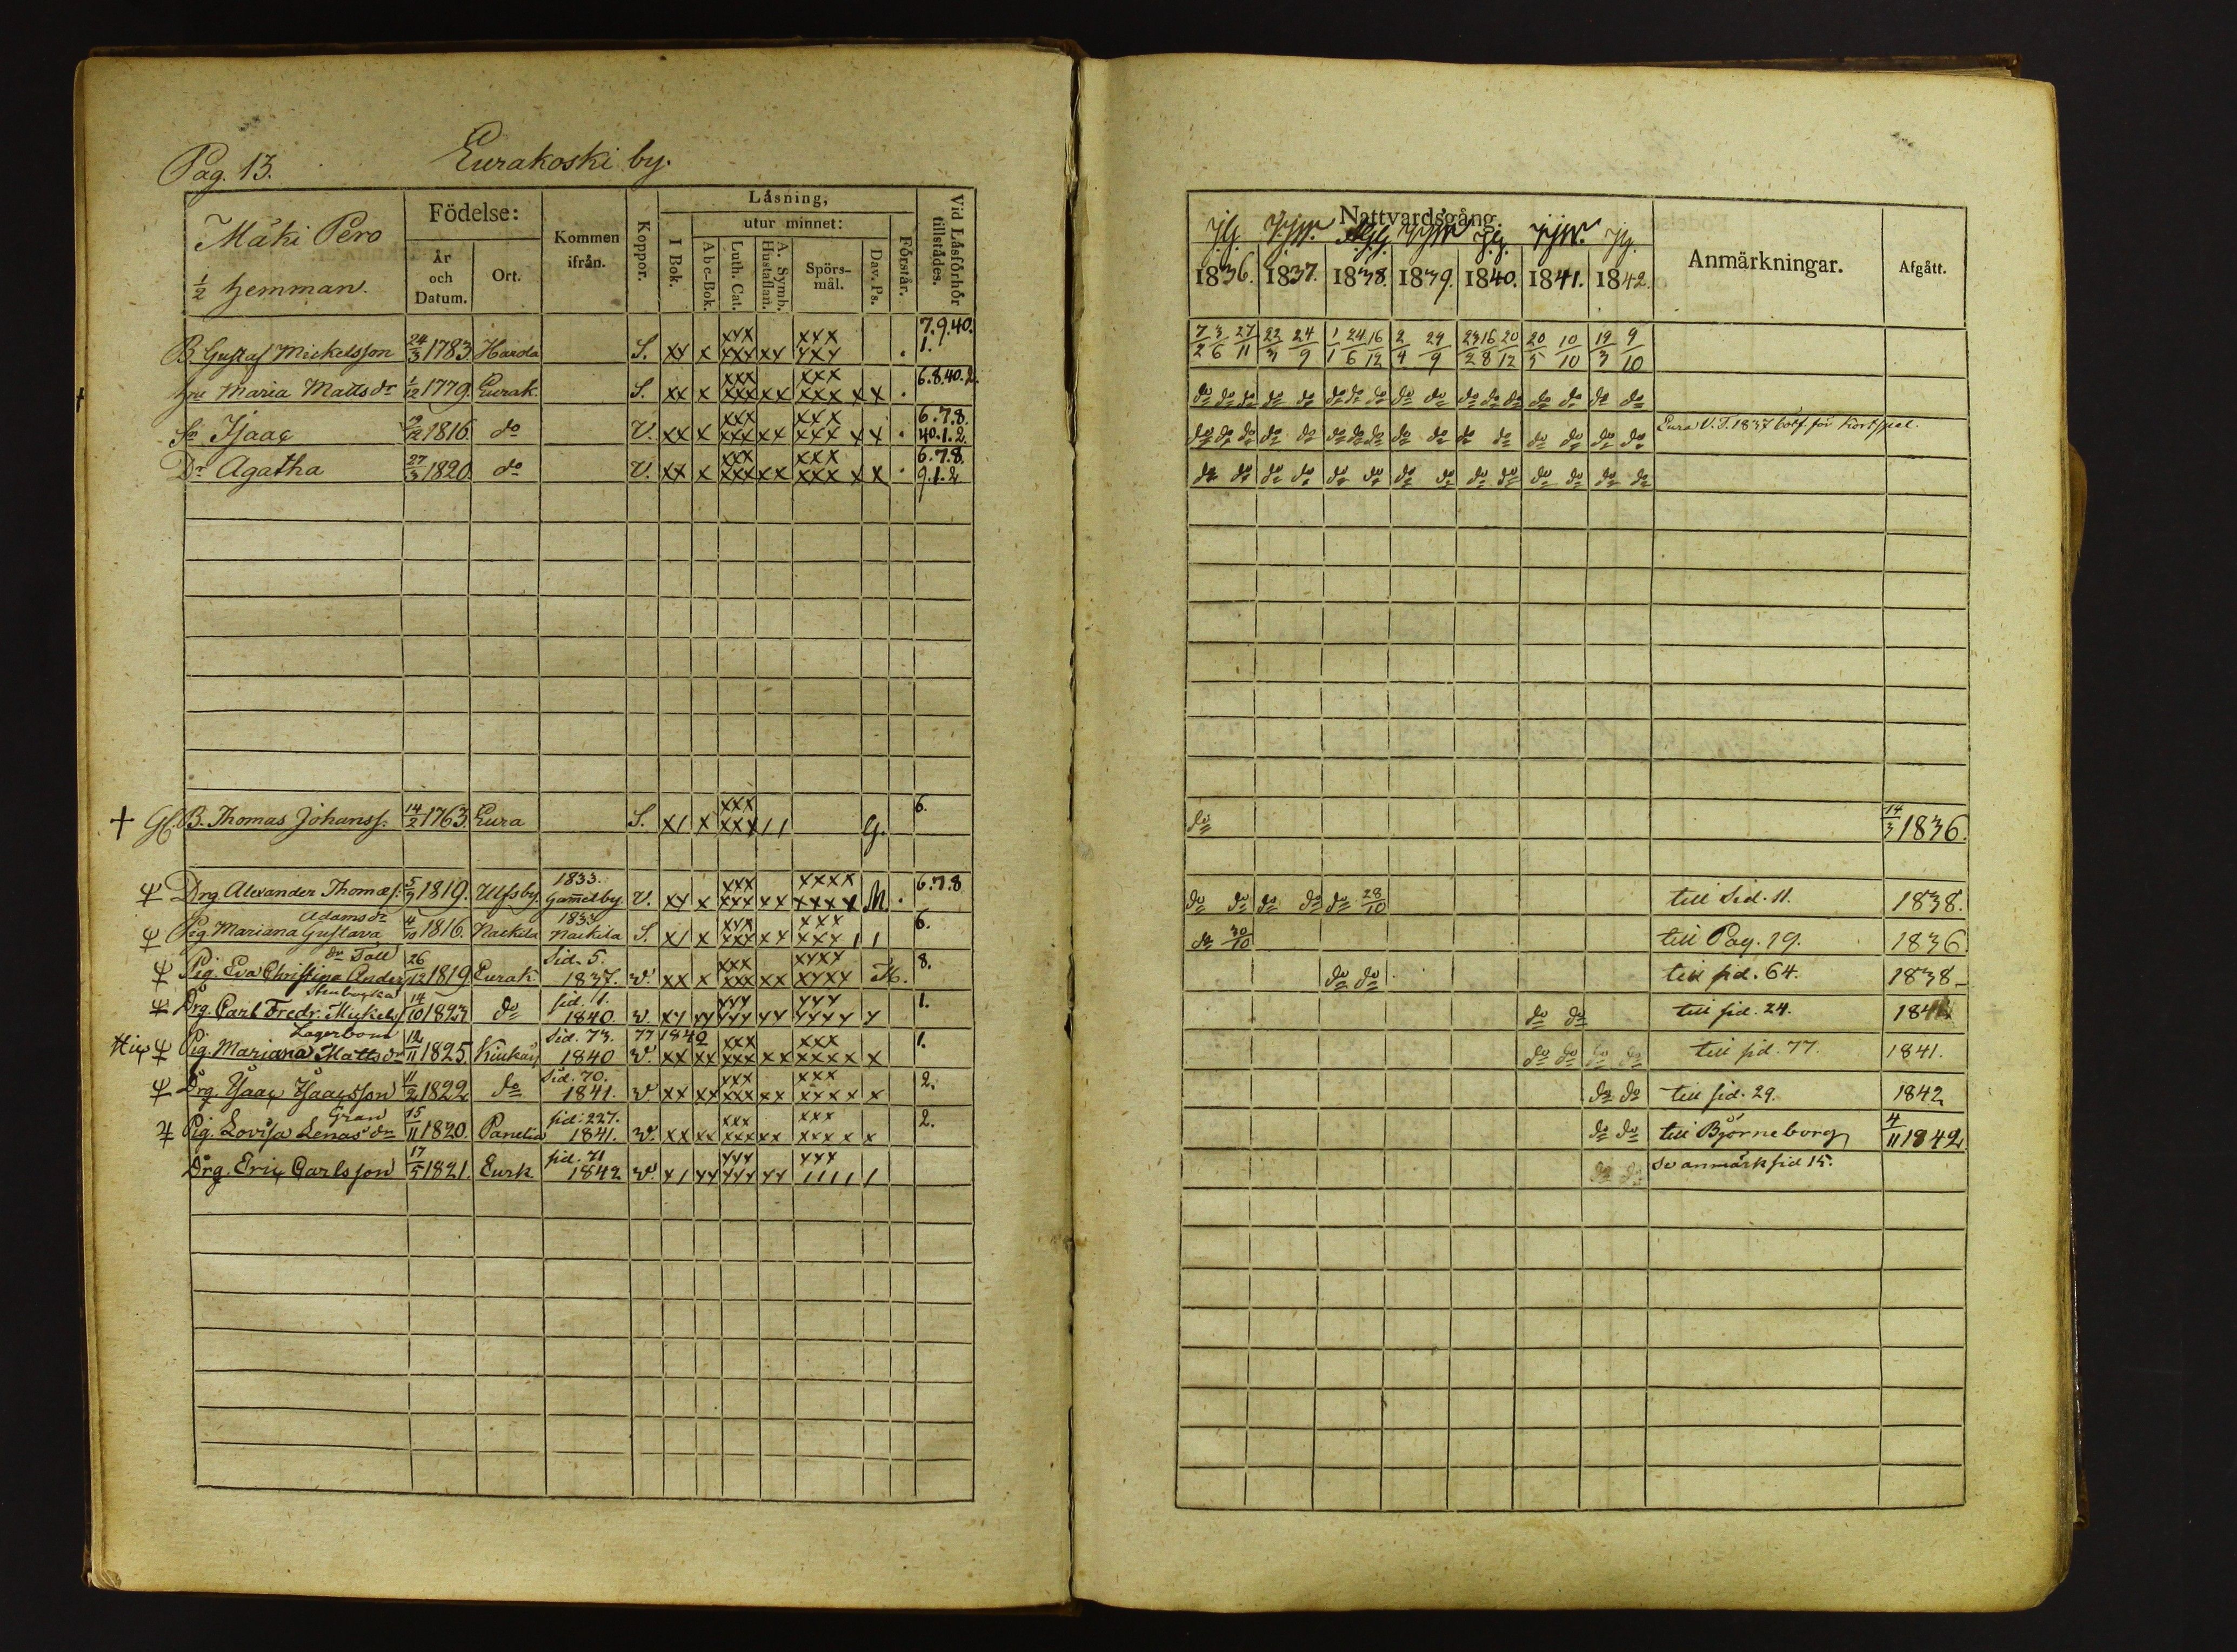 Pag. 13.
Eurakoski by.
Mäki Pero
½ hemman.
Födelse:
År och Datum.
Ort.
Kommen ifrån.
Koppor.
Läsning,
I Bok.
utur minnet:
Abc-Bok.
Luth. Cat.
A. Symb. Hustaflan.
Spörs-mål.
Dav. Ps.
Förstår.
Vid Läsförhör tillstådes.
Nattvardsgång.
1836. 1837. 1838. 1839. 1840. 1841. 1842.
Anmärkningar.
Afgått.
B. Gustaf Mickelsson 24/3 1783 Harola S. xx x xxx xxx xx xxx xxx . 7.9.40. 1. 7/2 3/6 27/11 22/3 24/9 1/1 24/6 16/12 2/4 29/9 23/2 16/8 20/12 20/5 10/10 19/3 9/10
Hu Maria Mattsdr 1/12 1779. Eurak. S. xx x xxx xxx xx xxx xxx xx . 6.8.40.2. do do do do do do do do do do do do do do do do do
So Isaac 1816. do V. xx x xxx xxx xx xxx xxx xx . 6.7.8. 40.1.2. do do do do do do do do do do do do do do do do Eura V. T. 1837 bötf. för Kortspel.
Dr Agatha 27/3 1820. do V. xx x xxx xxx xx xxx xxx xx . 6.7.8. 9.1.2 do do do do do do do do do do do do do do
+ Gl. B. Thomas Johanss. 14/2 1763. Eura S. x/ x xxx xxx // G. 6. do 14/3 1836.
Drg. Alexander Thomæs. 5/3 1819. Ulfsby. 1833. Gamelby. V. xx x xxx xxx xx xxxx xxxx M. . 6.7.8 do do do do do 28/10 till Sid. 11. 1838.
Pig. Mariana Gustava Adamsdr 4/10 1816. Naikila Naikila S. x/ x xxx xxx xx xxx xxx / / 6. do 30/10 till Pag. 19. 1836
Pig. Eva Christina Anders dr Tåll 26/12 1819 Eurak. Sid. 5. 1837. v. xx x xxx xxx xx xxxx xxxx 8. do do till sid. 64. 1838
Drg. Carl Fredr. Mickels. 14/10 1823 do sid. 1. 1840. v. xx xx xxx xxx xx xxx xxxx x 1. do do till sid. 24.
Pig. Mariana Mattsdr Lagerbom 12/11 1825. Kiukais Sid. 73. 1840 77 1840 v. xx xx xxx xxx xx xxx xxxx x 1. do do do do till sid. 77. 1841.
Drg. Isaac Isaacsson 11/2 1822 do Sid. 70. 1841. v xx xx xxx xxx xx xxx xxxx x 2. do do till sid. 29. 1842
Pig. Lovisa Lenasdr Gran 15/11 1820. Panelia sid. 227. 1841. v. xx xx xxx xxx xx xxx xxxx x 2. do do till Björneborg 4/11 1842
Drg. Eric Carlsson 17/5 1821. Eurk. sid. 71 1842 v. x/ xx xxx xxx xx xxx //// / do do Se anmärk sid 15.